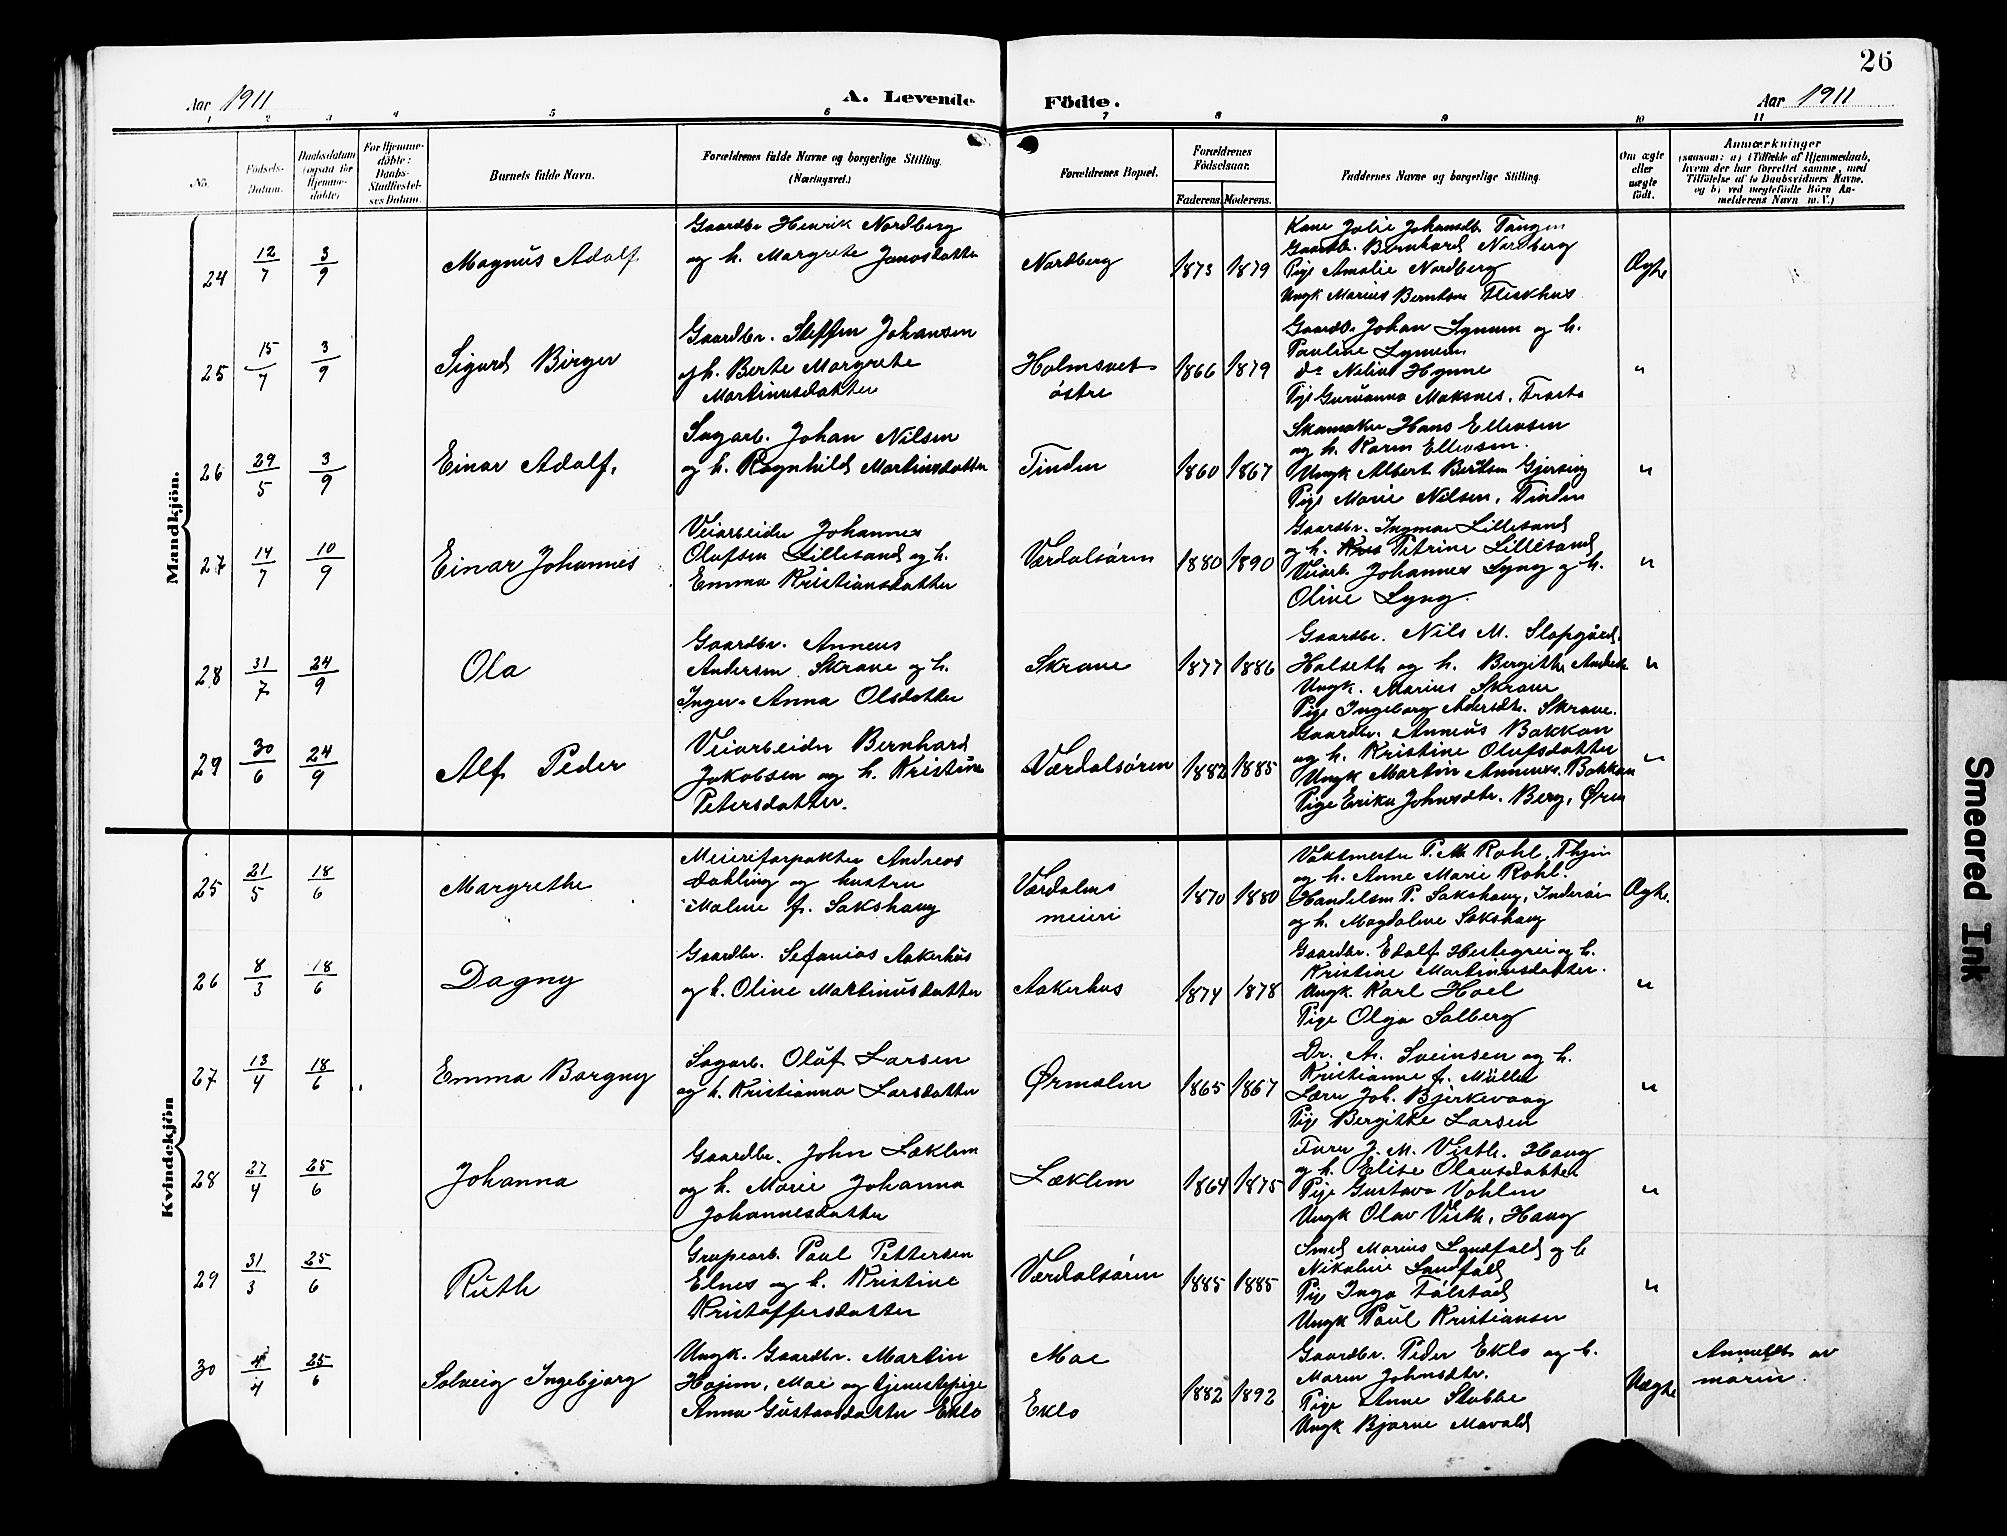 26
Aar 1911
A. Levende Födte.
Aar 1911
1 2 3 4 5 6 7 8 9 10 11
No.
Födsels-
Datum.
Daabsdatum
(ogsaa for
Hjemme-
döbte)
For Hjemme-
döbte:
Daabs-
Stadfæstel-
ses Datum.
Barnets fulde Navn.
Forældrenes fulde Navne og borgerlige Stilling.
(Næringsvei.)
Forældrenes Bopæl.
Forældrenes
Födselsaar.
Faderens. Moderens.
Faddernes Navne og borgerlige Stilling.
Om ægte
eller
uægte
födt.
Anmærkninger
(saasom: a) i Tilfælde af Hjemmedaab,
hvem der har forrettet samme, med
Tilföielse af to Daabsvidners Navne,
og b) ved uægtefödte Börn An-
melderens Navn m. V.)
Mandkjön.
24 12/7 3/9 Magnus Adolf
Gaardbr Henrik Nordberg
og h. Margrete Janosdatter
Nordberg 1873 1879
Kone Julie Johansdtr. Tangen
Gaardbr. Bernhard Nordberg
Pige Amalie Nordberg
Ungk Marius Berntsen Fleskhus
Ægte
25 15/7 3/9 Sigurd Birger
Gaardbr. Steffen Johansen
og h. Berte Margrete
Martinusdatter
Holmsvet
östre
1866 1879
Gaardb. Johan Lynum og h.
Pauline Lynum
do Nelius Hynne
Pige Guruanna Maksnes, Frosta
"
26 29/5 3/9 Einar Adolf.
Sagarb. Johan Nilsen
og h. Ragnhild Martinusdatter
Tinden 1860 1867
Skomaker Hans Ellevsen
og h. Karen Ellevsen.
Ungk Albert Berntsen Gjersing
Pige Marie Nilsen, Tinden
"
27 14/7 10/9 Einar Johannes
Veiarbeider Johannes
Olafsen Lillesand og h.
Emma Kristiansdatter
Værdalsøren 1880 1890
Gaardbr. Ingmar Lillesand
og h. Petrine Lillesand
Veiarb. Johannes Lyng og h.
Olive Lyng.
"
28 31/7 24/9 Ola
Gaardbr. Anneus
Andersen Skrove og h.
Inger-Anna Olsdatter
Skrove 1877 1886
Gaardbr. Nils M. Slapgård.
Halseth og h. Bergitte Andersd
Ungk. Marius Skrove
Pige Ingeborg Andersdtr. Skrove.
"
29 30/6 24/9 Alf Peder
Veiarbeider Bernhard
Jakobsen og h. Kristine
Petersdatter.
Værdalsøren 1882 1885
Gaardbr. Anneus Bakkan
og h. Kristine Olufsdatter
Ungk Martin Anneuss. Bakkan
Pige Erika Johnsdtr. Berg, Øren
"
Kvindekjön
25 21/5 18/6 Margrethe
Meieriforpakter Andreas
Dahling og hustru
Malene f. Sakshaug
Værdalens
meieri
1870 1880
Vaktmester P. M. Rohl,
og h. Anne Marie Rohl.
Handelsm P. Sakshaug, Inderøi
og h. Magdalene Sakshaug
Ægte.
26 8/3 18/6 Dagny
Gaardbr. Sefanias Aakerhus
og h. Oline Martinusdatter
Aakerhus 1874 1878
Gaardbr. Edolf Hestegrei og h.
Kristine Martinusdatter.
Ungk. Karl Hoel
Pige Olga Solberg
"
27 13/4 18/6 Emma Borgny
Sagarb. Oluf Larsen
og h. Kristianna Larsdatter
Ørmelen 1865 1867
Dr. A. Sveinsen og h.
Kristianne f. Müller
Lærer Joh. Bjerkevaag
Pige Bergitte Larsen
"
28 27/4 25/6 Johanna
Gaardbr. John Læklem
og h. Marie Johanna
Johannesdatter
Læklem 1864 1875
Furer J. M. Visth. Haug
og h. Elise Olausdatter
Pige Gustava Vohlen
Ungk Olav Visth. Haug
"
29 31/3 25/6 Ruth
Grupearb. Paul Pettersen
Elnes og h. Kristine
Kristoffersdatter
Værdalsøren 1885 1885
Smed Marius Landfald og h
Nikoline Landfald
Pige Inga Tolstad
Ungk Paul Kristiansen
"
30 4/4 25/6 Solveig Ingebjorg
Ungk. Gaardbr. Martin
Hojem, Moe og tjenestepige
Anna Gustavsdatter Eklo
Moe
Eklo
1882 1892
Gaardbr. Peder Eklo og h.
Maren Johnsdtr.
Pige Anne Stubbe
Ungk Bjarne Mavold
Uægte
Anmeldt av
moren.
Smeared Ink